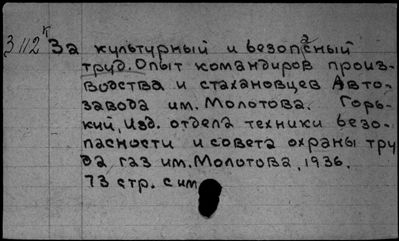 З 112 к За культурный и безопасный
труд. Опыт командиров произ-
водства и стахановцев Авто-
завода им. Молотова. Горь-
кий, Изд. отдела техники безо-
пасности и совета охраны тру
да газ им. Молотова, 1936.
73 стр. с илл